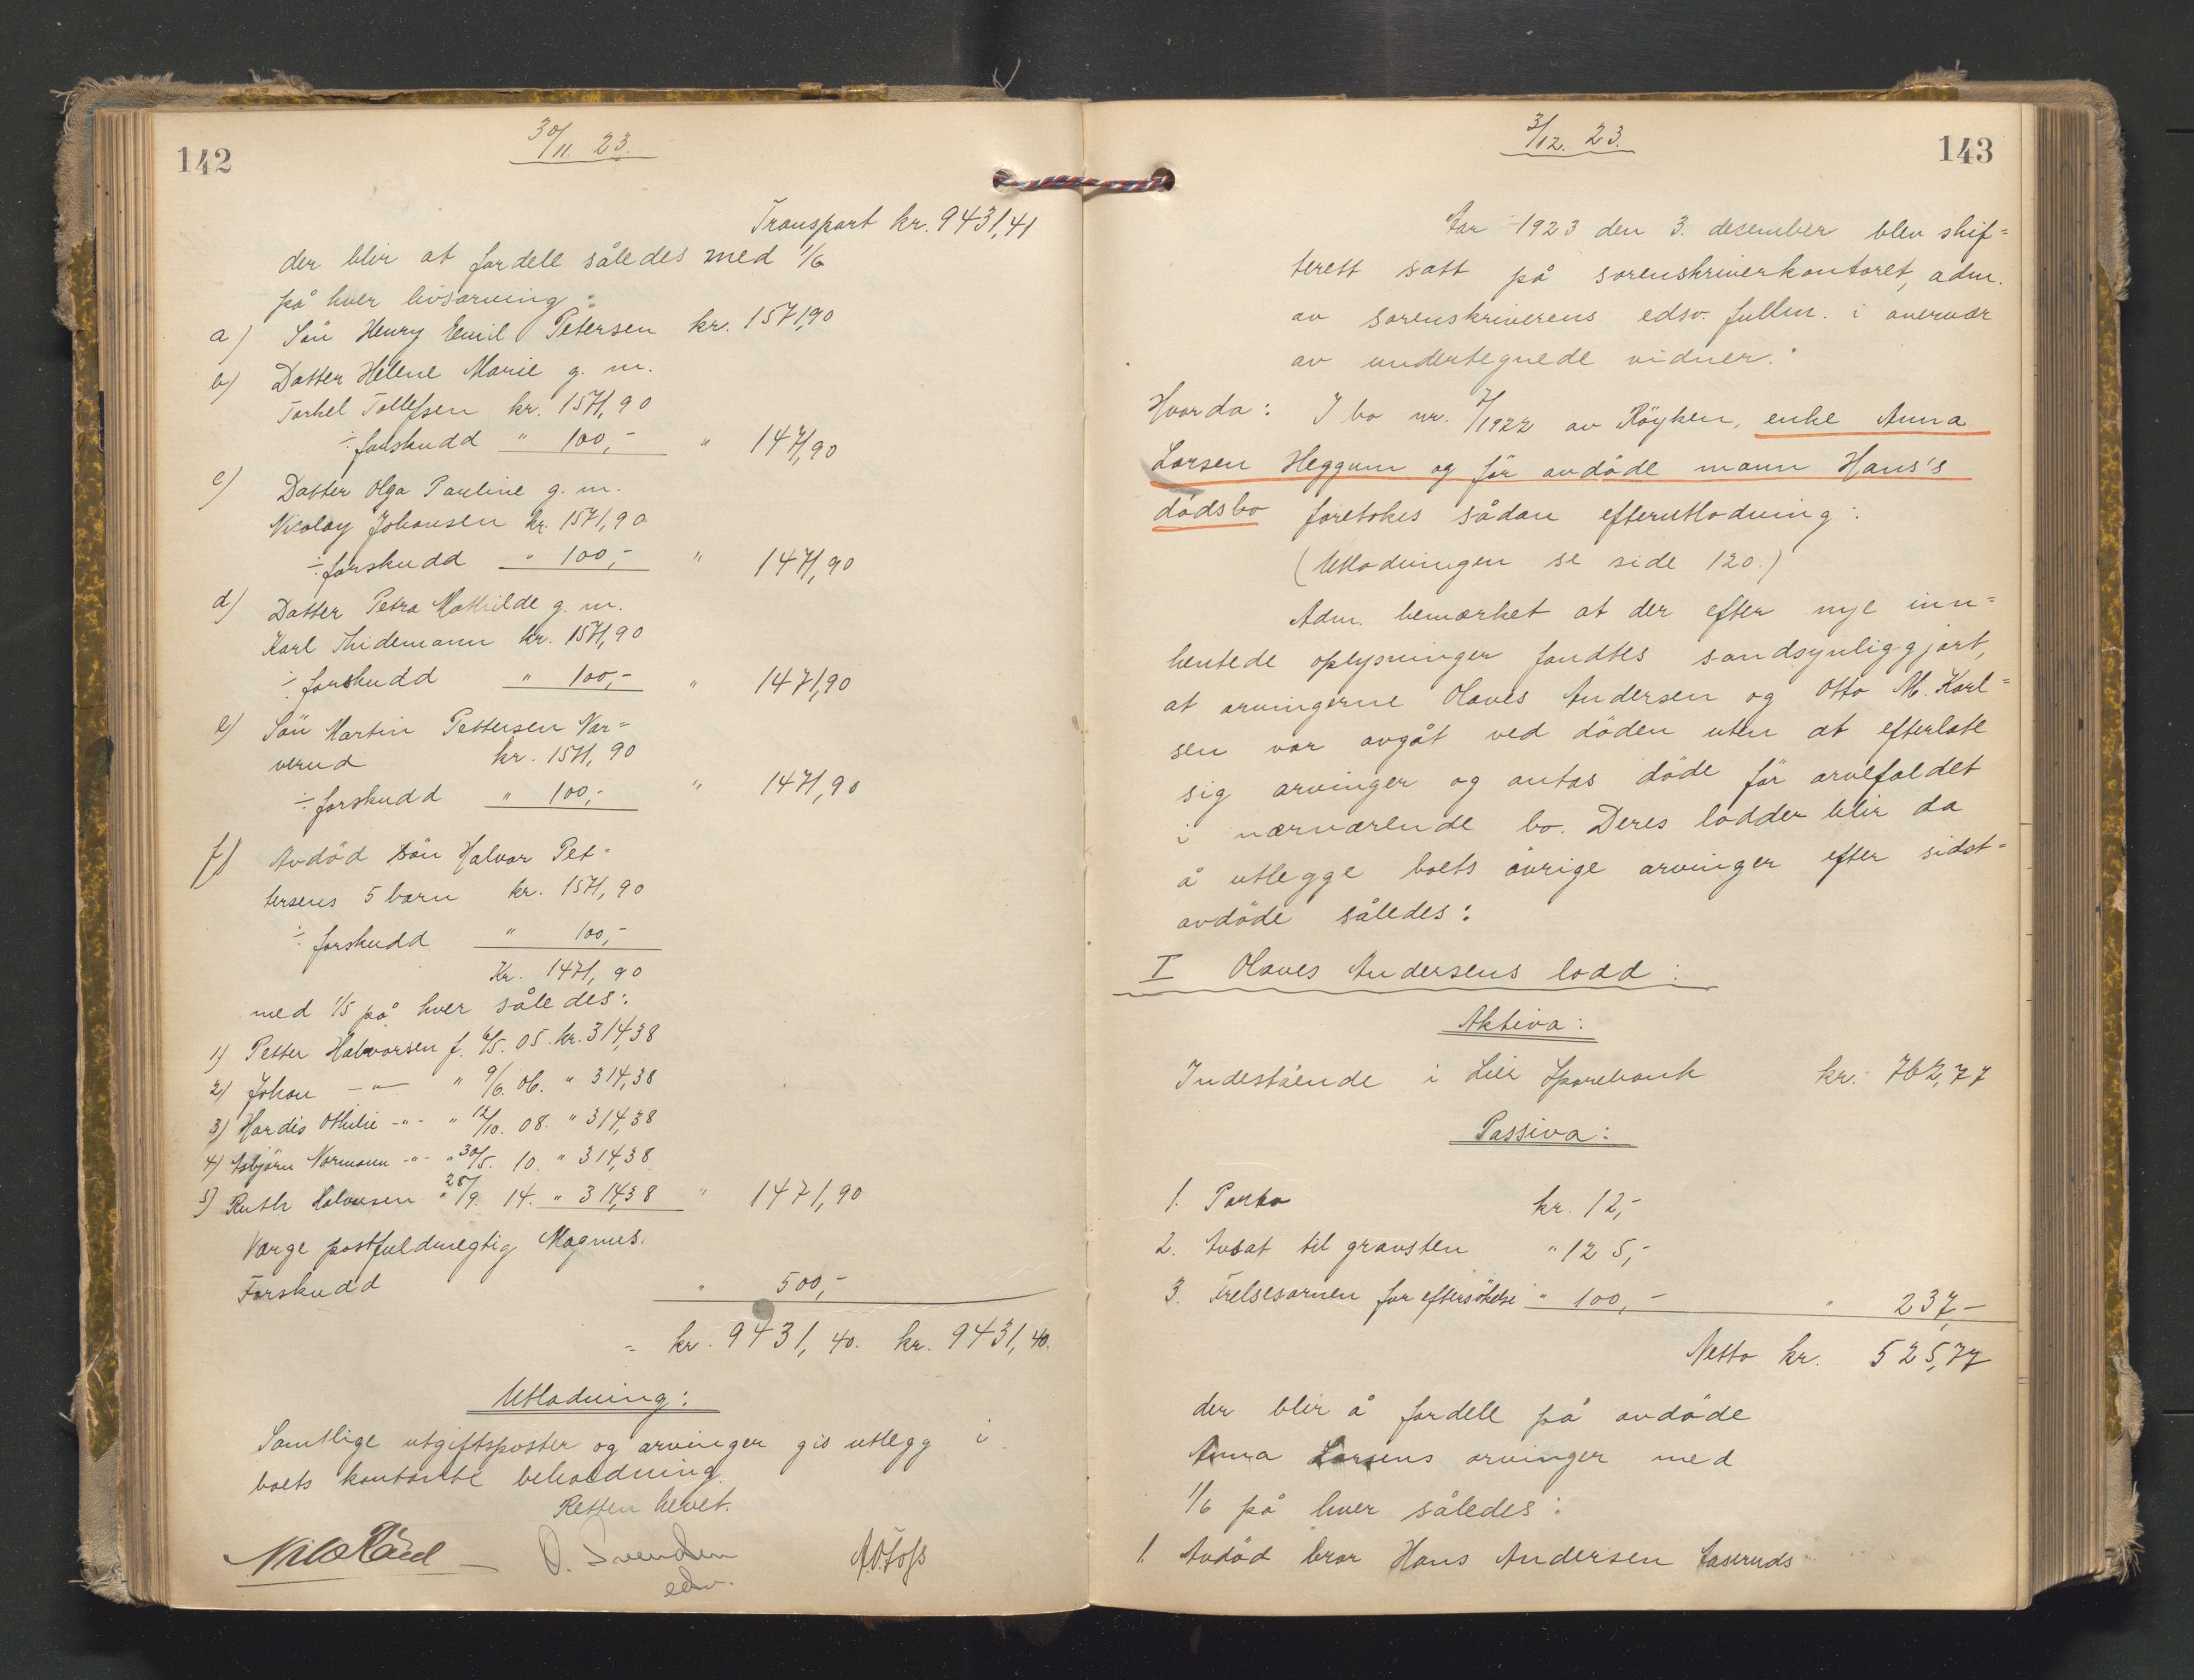 142
30/11. 23.
Transport kr. 9431,41
der blir at fordele således med 1/6
på hver livsarving:
a) Sön Henry Emil Petersen kr. 1571,90
b) Datter Helene Marie g. m.
Torkel Tollefsen kr. 1571,90
÷ forskudd " 100,- " 1471,90
c) Datter Olga Pauline g. m.
Nicolay Johansen kr. 1571,90
÷ forskudd " 100,- " 1471,90
d) Datter Petra Mathilde g. m.
Karl Thidemann kr. 1571,90
÷ forskudd " 100,- " 1471,90
e) Sön Martin Pettersen Var=
verud kr. 1571,90
÷ forskudd " 100,- " 1471,90
f) Avdöd sön Halvor Pet=
tersens 5 barn kr. 1571,90
÷ forskudd " 100,-
Kr. 1471,90
med 1/5 på hver således:
1) Petter Halvorsen f. 6/5. 05. kr. 314,38
2) Johan -"- " 9/6. 06. " 314,38
3) Hardis Othilie -"- " 12/10. 08. " 314,38
4) Asbjörn Normann -"- " 30/5. 10. " 314,38
5) Ruth Halvorsen " 28/9. 14. " 314,38 " 1471,90
Verge postfuldmegtig Magnus.
Forskudd " 500,-
= kr. 9431,40. kr. 9431,40.
Utlodning:
Samtlige utgiftsposter og arvinger gis utlegg i
boets kontante beholdning.
Retten hevet.
O. Svendsen A. O. Foss
edsv.
3/12. 23.
143
Aar 1923 den 3. desember blev skif=
terett satt på sorenskriverkontoret, adm.
av sorenskriverens edsv. fullm. i overvær
av undertegnede vidner.
Hvorda: I bo nr. 7/1922 av Röyken, enke Anna
Larsen Heggum og før avdöde mann Hans's
dödsbo foretokes sådan efterutlodning:
(Utlodningen se side 120.)
Adm. bemærket at der efter nye inn=
hentede oplysninger fandtes sandsynliggjort,
at arvingerne Olaves Andersen og Otto M. Karl=
sen var avgåt ved döden uten at efterlate
sig arvinger og antas döde før arvefaldet
i nærværende bo. Deres lodder blir da
å utlegge boets övrige arvinger efter sidst=
avdöde således:
I Olaves Andersens lodd:
Aktiva:
Indestående i Lier Sparebank kr. 762,77
Passiva:
1. Porto kr. 12,-
2. Avsat til gravsten " 125,-
3. Frelsesarmen for eftersökelse " 100,- " 237,-
Netto kr. 525,77
der blir å fordele på avdöde
Anna Larsens arvinger med
1/6 på hver således:
1. Avdöd bror Hans Andersen Aaseruds